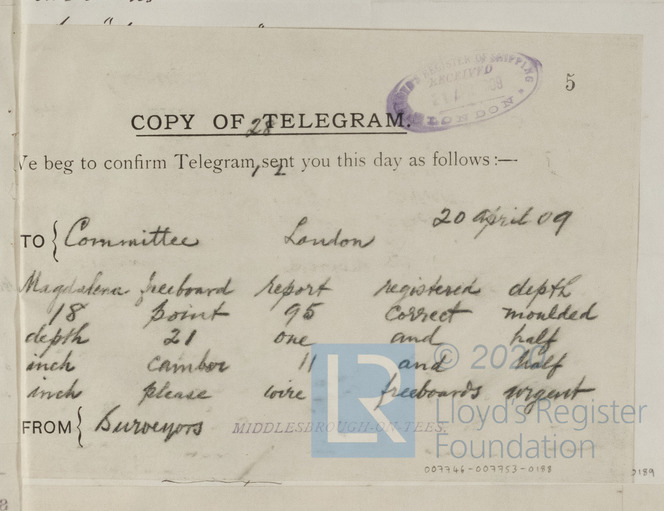 LLOYD'S REGISTER OF SHIPPING
RECEIVED
LONDON
5
COPY OF TELEGRAM.
28
We beg to confirm Telegram, sent you this day as follows:—
20 April 09
TO { Committee London
Magdalena freeboard report registered depth
18 point 95 correct moulded
depth 21 one and half
inch camber 11 and half
inch please wire freeboards urgent
FROM { Surveyors MIDDLESBROUGH-ON-TEES.
LR
Lloyd's Register
Foundation
007744-007753-0188
0189